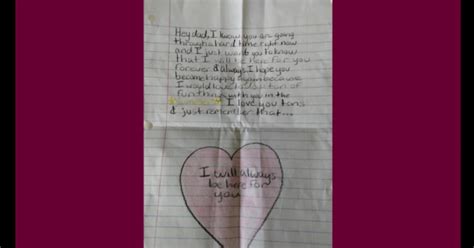 Hey dad, I know you are going
through a hard time right now
and I just want you to know
that I will be here for you
forever & always. I hope you
become happy again because
I would love to do a ton of
fun things with you in the
I love you tons
& just remember that...
I will always
be here for
you